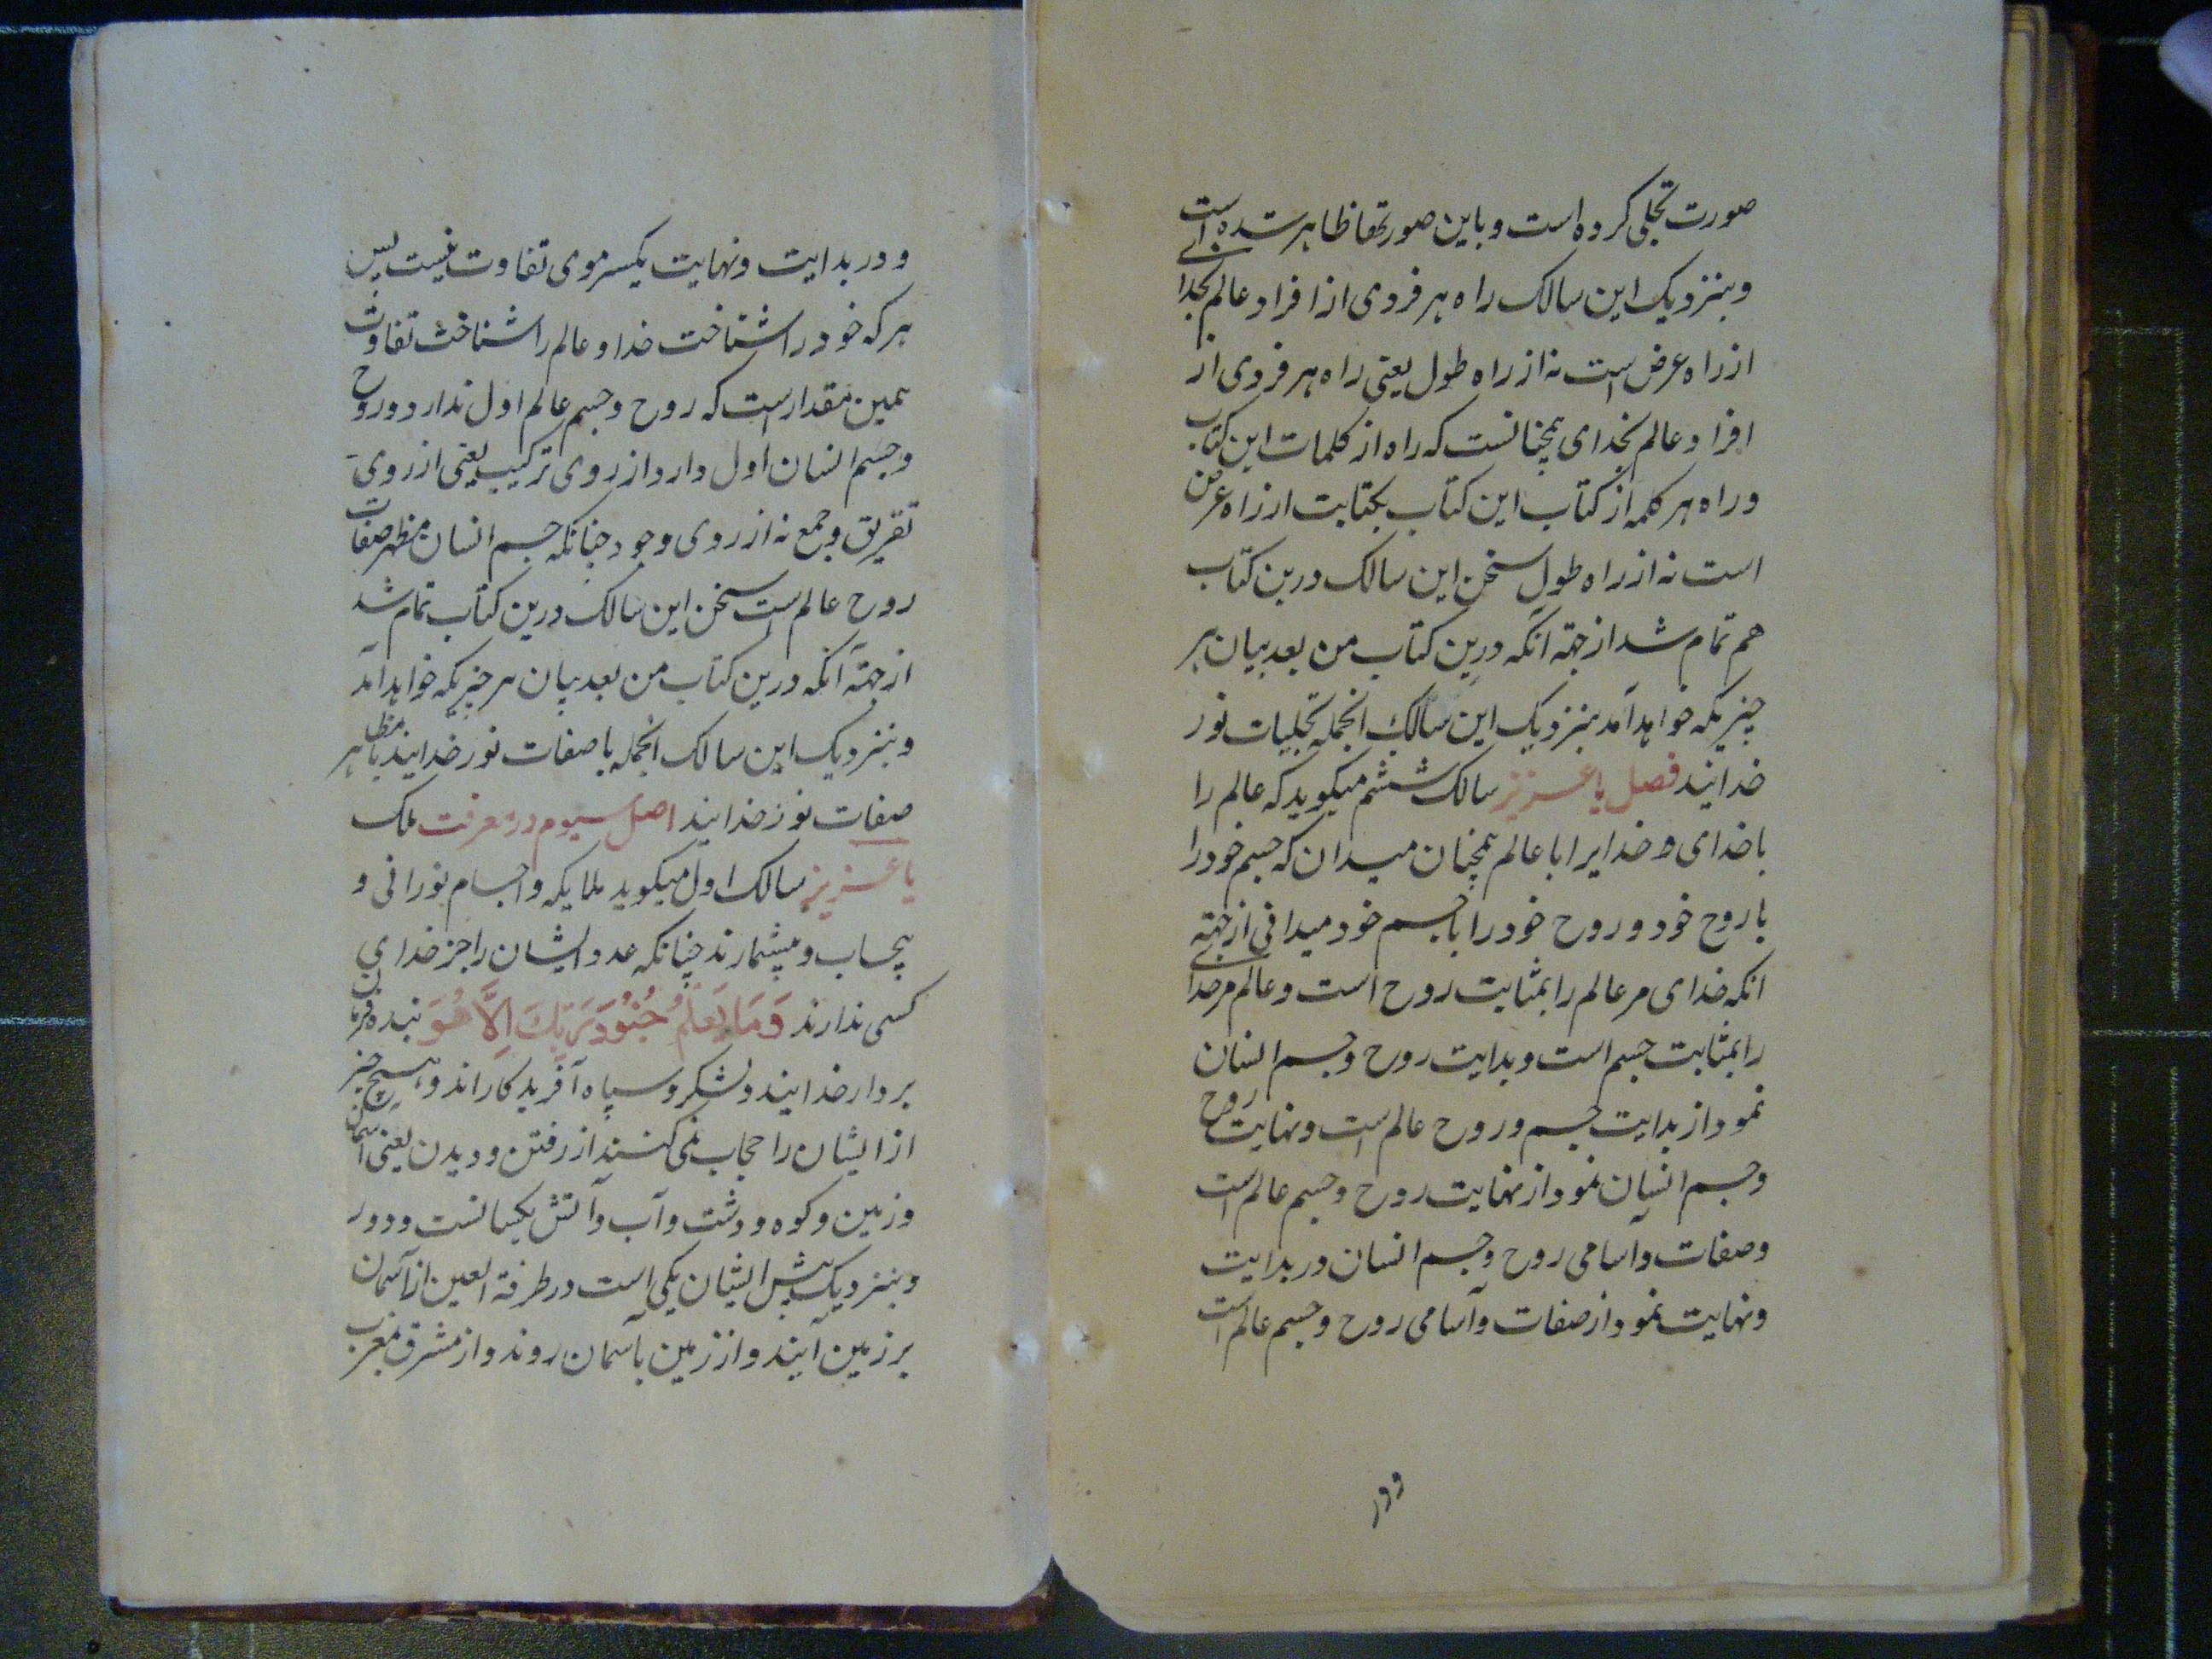 صورت تجلی کرده است و باین صورتها ظاهر شده است
و بنزدیک این سالک راه هر فردی از افراد عالم بخدای
از راه عرض است نه از راه طول یعنی راه هر فردی از
افراد عالم بخدای همچنانست که راه از کلمات این کتاب
و راه هر کلمه از کتاب این کتاب بکتابت از راه عرض
است نه از راه طول سخن این سالک درین کتاب
هم تمام شد از جهة آنکه درین کتاب من بعد بیان هر
چیزیکه خواهد آمد بنزدیک این سالک انجمله تجلیات نور
خدایند فصل یا عزیز سالک ششم میکوید که عالم را
با خدای و خدایرا با عالم همچنان میدان که جسم خود را
با روح خود و روح خود را با جسم خود میدانی از جهة
انکه خدای مر عالم را بمثابت روح است و عالم مر خدای
را بمثابت جسم است و بدایت روح و جسم انسان
نمودار بدایت جسم و روح عالم است و نهایت روح
و جسم انسان نمودار نهایت روح و جسم عالم است
و صفات و آسامی روح و جسم انسان در بدایت
و نهایت نمودار صفات و آسامی روح و جسم عالم است
و در
و در بدایت و نهایت یکسر موی تفاوت نیست پس
هر که خود را شناخت خدا و عالم را شناخت تفاوت
همین مقدارست که روح و جسم عالم اول ندارد و روح
و جسم انسان اول دارد از روی ترکیب یعنی از روی
تفریق و جمع نه از روی وجود چنانکه جسم انسان مظهر صفات
روح عالم است سخن این سالک درین کتاب تمام شد
از جهة آنکه درین کتاب من بعد بیان هر چیزیکه خواهد آمد
و بنزدیک این سالک انجمله یا صفات نور خدایند یا مظاهر
صفات نور خدایند اصل سیوم در معرفت ملک
یا عزیز سالک اول میکوید ملایکه و اجسام نورانی و
بیحساب و بیشمارند چنانکه عدد ایشان را جز خدای
کسی ندارند وَمَا يَعْلَمُ جُنُودَ رَبِّكَ اِلَّا هُوَ بنده فرمان
بردار خدایند و لشکر و سپاه آفریدکاراند و هیچ چیز
از ایشان را حجاب نمی کنند از رفتن و دیدن یعنی آسمان
و زمین و کوه و دشت و آب و آتش یکسانست و دور
و بنزدیک پیش ایشان یکی است در طرفة العین از آسمان
بر زمین آیند و از زمین بآسمان روند و از مشرق بمغرب